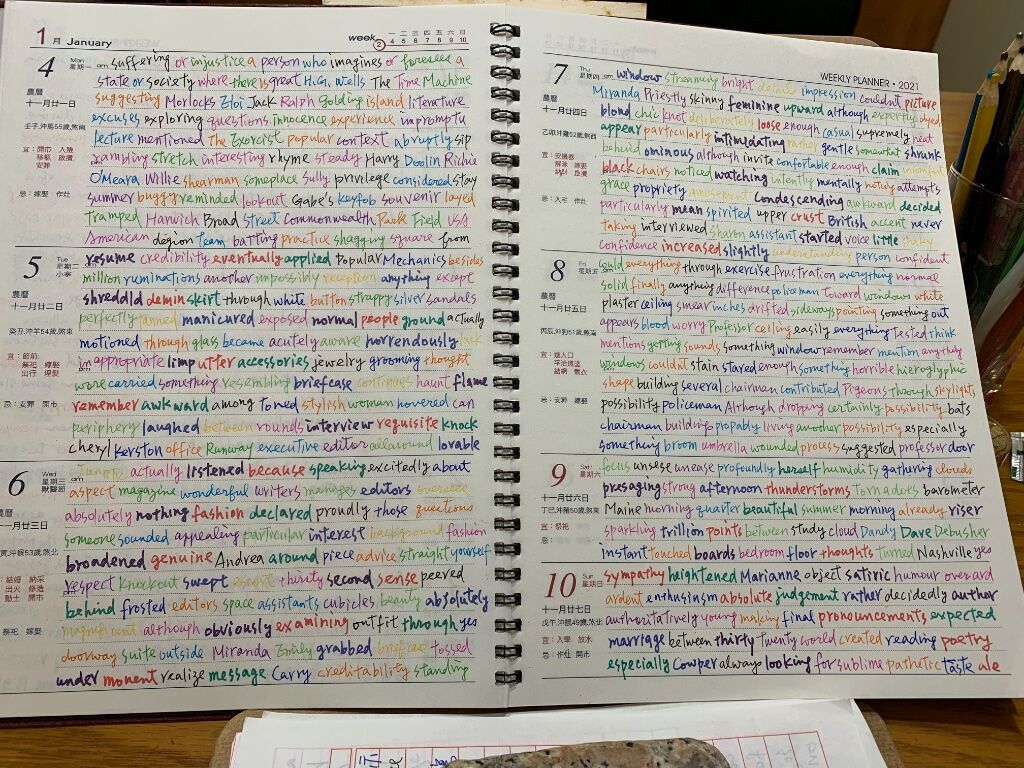 1月 January
week 2
一 二 三 四 五 六 日
4 5 6 7 8 9 10
4 Mon 星期一 am
suffering or injustice a person who imagines or foresees a
state or society where there is great H.G. Wells The Time Machine
農曆
十一月廿一日
suggesting Morlocks Eloi Jack Ralph Golding island literature
excuses exploring questions innocence experience impromptu
lecture mentioned The Exorcist popular context abruptly sip
rambling stretch interesting rhyme steady Harry Doolin Richie
O'Meara Willie Shearman someplace Sully privilege considered stay
忌：嫁娶 作灶
summer buggy reminded lookout Gabe's keyfob souvenir layed
tramped Harwich Broad Street Commonwealth Park Field USA
American degion team batting practice shagging square from
5 Tue 星期二 小寒 am
resume credibility eventually applied Popular Mechanics besides
million ruminations another impossibly reception anything except
農曆
十一月廿二日
shreddld demin skirt through white button strappy silver sandals
perfectly tanned manicured exposed normal people ground actually
motioned through glass became acutely aware horrendously lack
inappropriate limp utter accessories jewelry grooming thought
wore carried something resembling briefcase continues haunt flame
忌：安葬 開市
remember awkward among toned stylish woman hovered can
periphery laughed between rounds interview requisite knock
cheryl kerston office Runway executive editor allaround lovable
6 Wed 星期三 獸醫節 am
actually listened because speaking excitedly about
aspect magazine wonderful writers manages editors oversees
農曆
十一月廿三日
absolutely nothing fashion declared proudly those questions
someone sounded appealing particular interest background fashion
broadened genuine Andrea around piece advice straight yourself
respect knockout swept thirty second sense peered
behind frosted editors space assistants cubicles beauty absolutely
magnificent although obviously examining outfit through yes
doorway suite outside Miranda Emily grabbed briefcase tossed
under moment realize message Carry creditability standing
WEEKLY PLANNER • 2021
7 Thu 星期四 am
window streaming bright detail impression couldn't picture
Miranda Priestly skinny feminine upward although expertly dyed
農曆
十一月廿四日
blond chic knot deliberately loose enough casual supremely neat
appear particularly intimidating rather gentle somewhat shrunk
behind ominous although invite confortable enough claim
black chairs noticed watching intently mentally noting attempts
grace propriety amusement condescending awkward decided
忌：入宅 作灶
particularly mean spirited upper crust British accent never
taking interviewed sharon assistant started voice little shaky
confidence increased slightly understanding person confident
8 Fri 星期五 am
could everything through exercise frustration everything normal
solid finally anything difference policeman Toward windows white
農曆
十一月廿五日
plaster ceiling smear inches drifted sideways pointing something out
appears blood worry Professor ceiling easily everything tested think
mentions getting sounds something window remember mention anything
windows couldn't stain stayed enough something horrible hieroglyphic
shape building several chairman contributed Pigeons through skylights
possibility policeman Although dropping certainly possibility bats
chairman building propably living another possibility especially
something broom umbrella wounded process suggested professor door
9 Sat 星期六
focus unsese unease profoundly herself humidity gathering clouds
十一月廿六日
presaging strong afternoon thunderstorms Tornadoes barometer
Maine morning quarter beautiful summer morning already riser
宜：祭祀
sparkling trillion points between study cloud Dandy Dave Debusher
忌：
instant touched boards bedroom floor thoughts turned Nashville yes
10 Sun 星期日
sympathy heightened Marianne object satiric humour over ard
ardent enthusiasm absolute judgement rather decidedly author
十一月廿七日
authoritatively young making final pronouncements expected
宜：入學 放水
marriage between thirty Twenty world created reading poetry
忌：作灶 開市
especially Cowper always looking for sublime pathetic taste ale